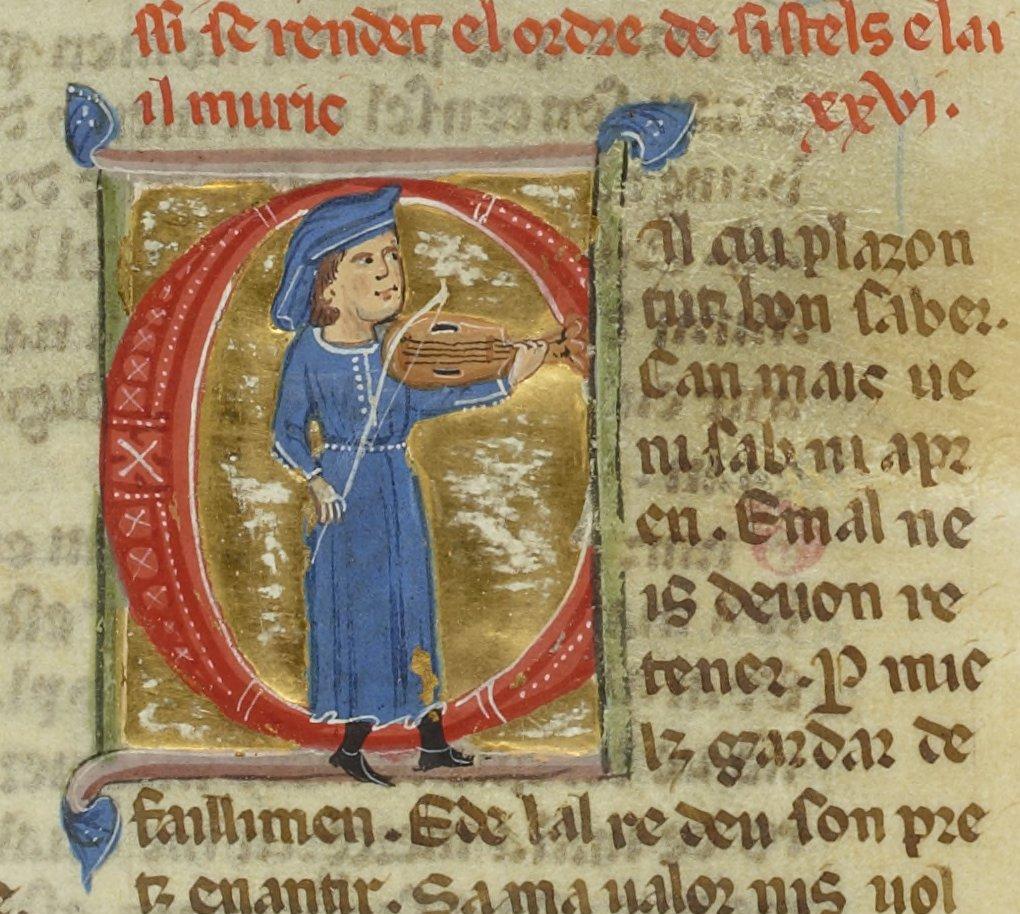 ssi se rendet el ordre de sistels e lai
il muric xxvi.
Al cui plazon
tut bon saber.
Can maiс ue
ni sab ni apr
en. E mal ne
is deuon re
tener. P mie
lz gardar de
faillimen. E de lal re deu son pre
tz enantir. Sa ma ualor nis uol